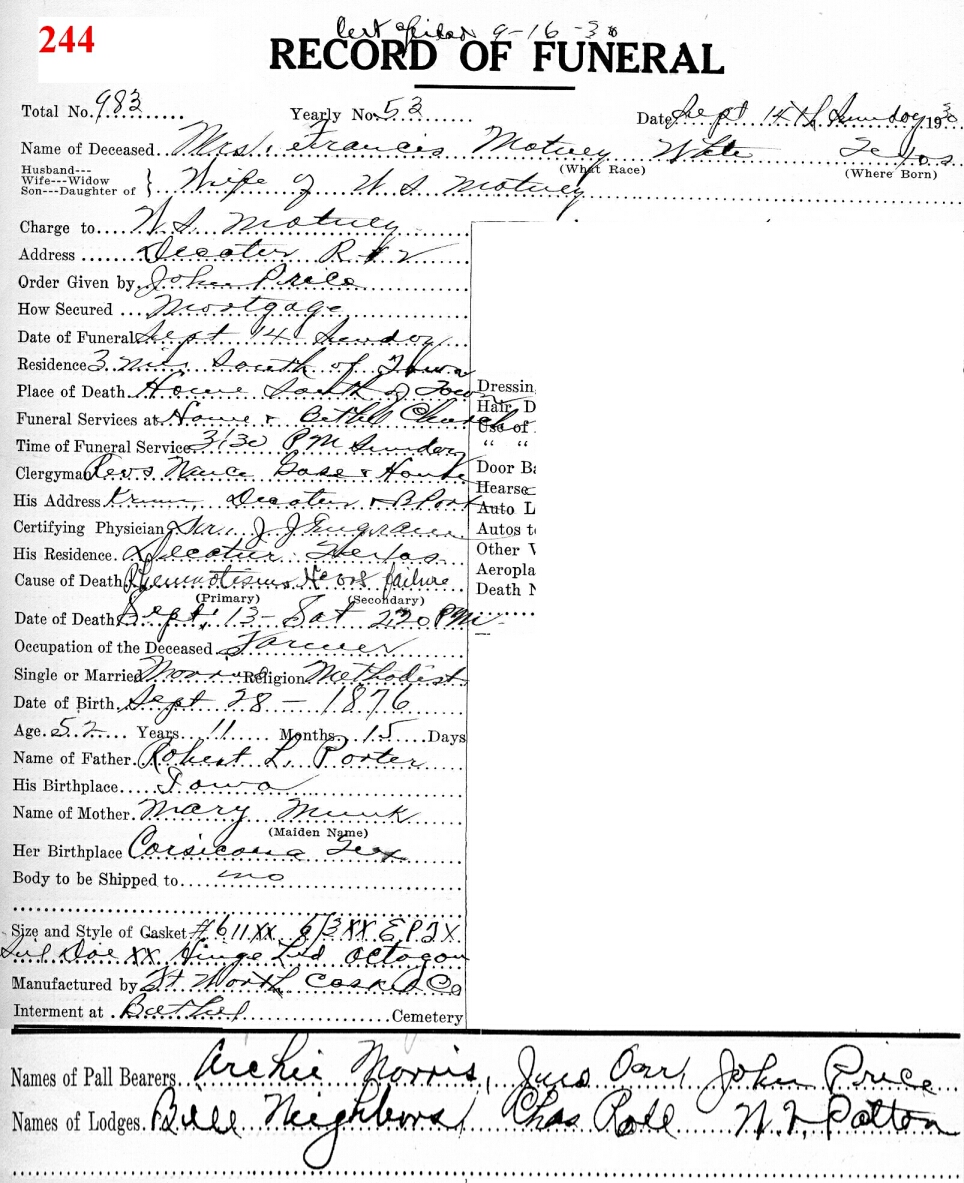 244
Cert filed 9-16-30
RECORD OF FUNERAL
Total No. 983 Yearly No. 53 Date Sept 14th Sunday 1930
Name of Deceased Mrs. Francis Motney White Texas
(What Race) (Where Born)
Husband---
Wife---Widow
Son---Daughter of } Wife of W. S. Motney
Charge to W. S. Motney
Address Decatur R # 2
Order Given by John Price
How Secured Mortgage
Date of Funeral Sept 14 Sunday
Residence 3 miles South of Town
Place of Death Home South of Town
Funeral Services at Home & Bethel Church
Time of Funeral Service 3:30 PM Sunday
Clergyman Revs Nance &
His Address Krum, Decatur & B Port
Certifying Physician Dr. J. J. Ingram
His Residence Decatur Texas
Cause of Death Rheumatism Heart failure
(Primary) (Secondary)
Date of Death Sept. 13 - Sat 2:20 PM
Occupation of the Deceased Farmer
Single or Married Married Religion Methodist
Date of Birth Sept 28 - 1876
Age 52 Years 11 Months 15 Days
Name of Father Robert L. Porter
His Birthplace Iowa
Name of Mother Mary Munk
(Maiden Name)
Her Birthplace Corsicana Tex
Body to be Shipped to no
Size and Style of Casket #611XX 6/3 XX E P T X
Doe XX Hinge Lid Octogon
Manufactured by Ft Worth Casket Co
Interment at Bethel Cemetery
Dressin
Hair, D
Use of
" "
Door Ba
Hearse
Auto L
Autos to
Other V
Aeropla
Death N
Names of Pall Bearers Archie Morris, Juro Orr, John Price
Names of Lodges Bill Neighbors, Chas Roll N. L. Patton